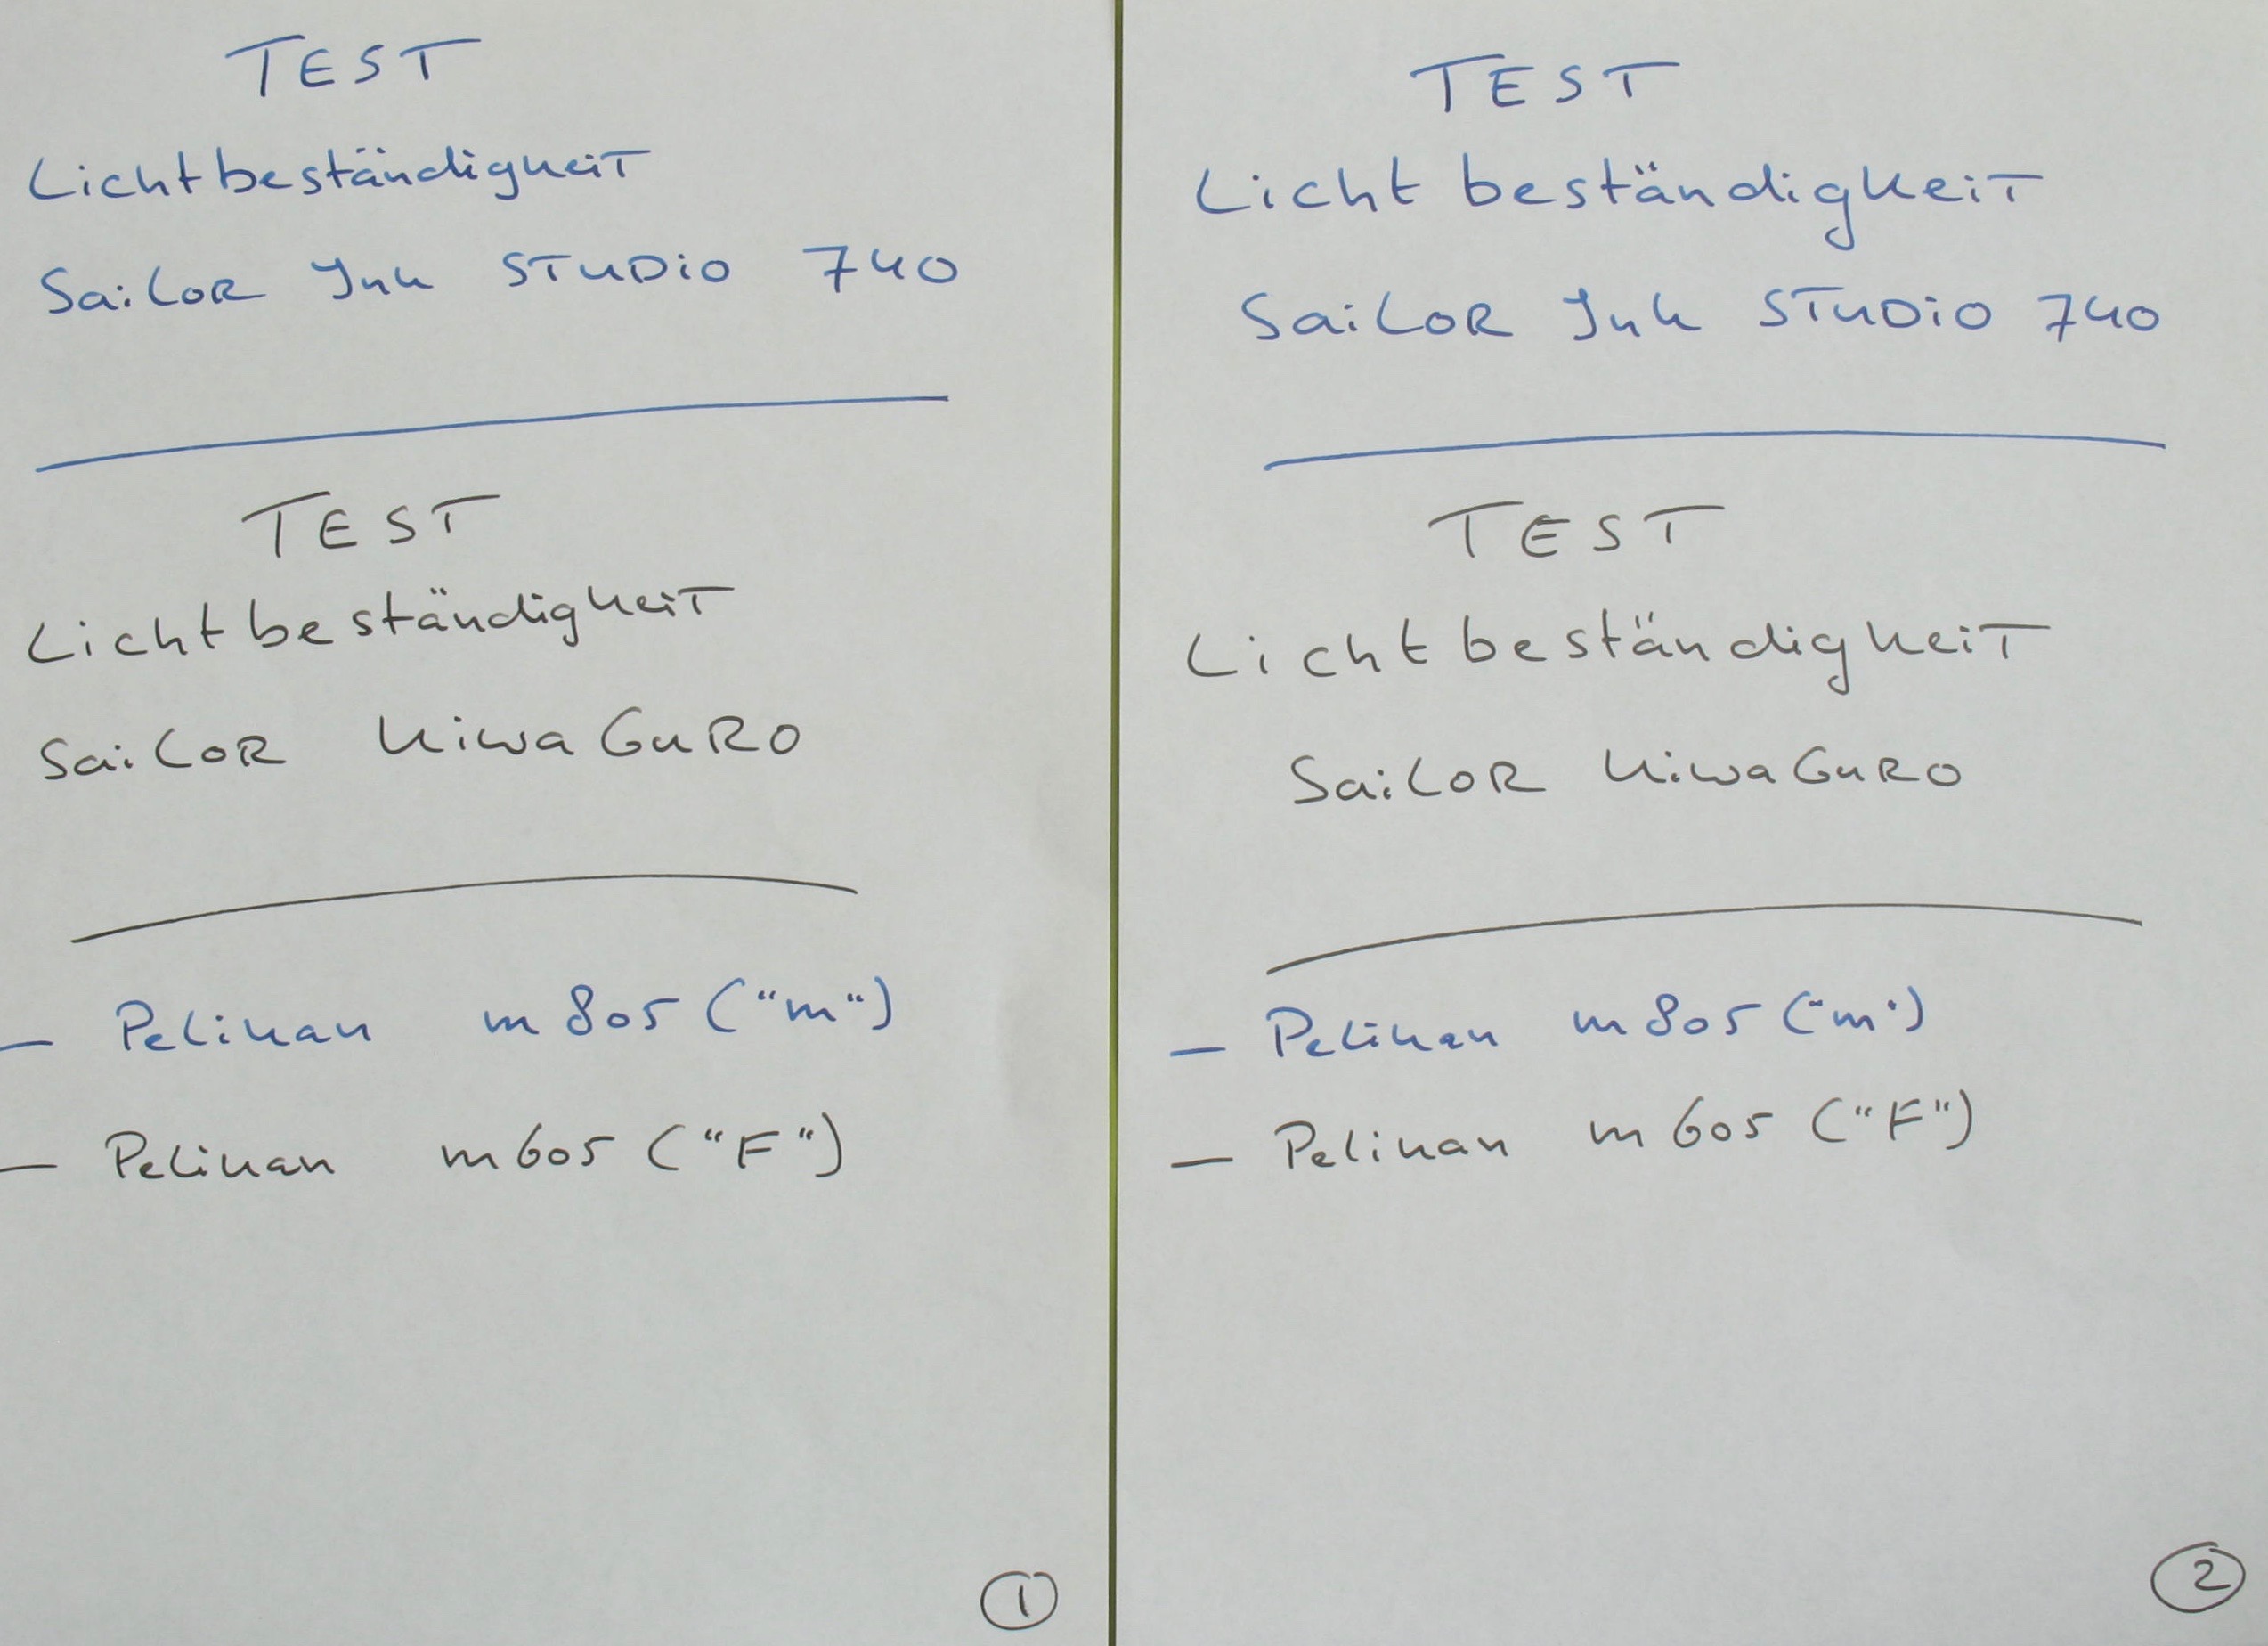 TEST
Lichtbeständigkeit
Sailor Ink STUDIO 740
TEST
Lichtbeständigkeit
Sailor KiwaGuro
- Pelikan m805 ("m")
- Pelikan m605 ("F")
1
TEST
Lichtbeständigkeit
Sailor Ink STUDIO 740
TEST
Lichtbeständigkeit
Sailor KiwaGuro
- Pelikan m805 ("m")
- Pelikan m605 ("F")
2